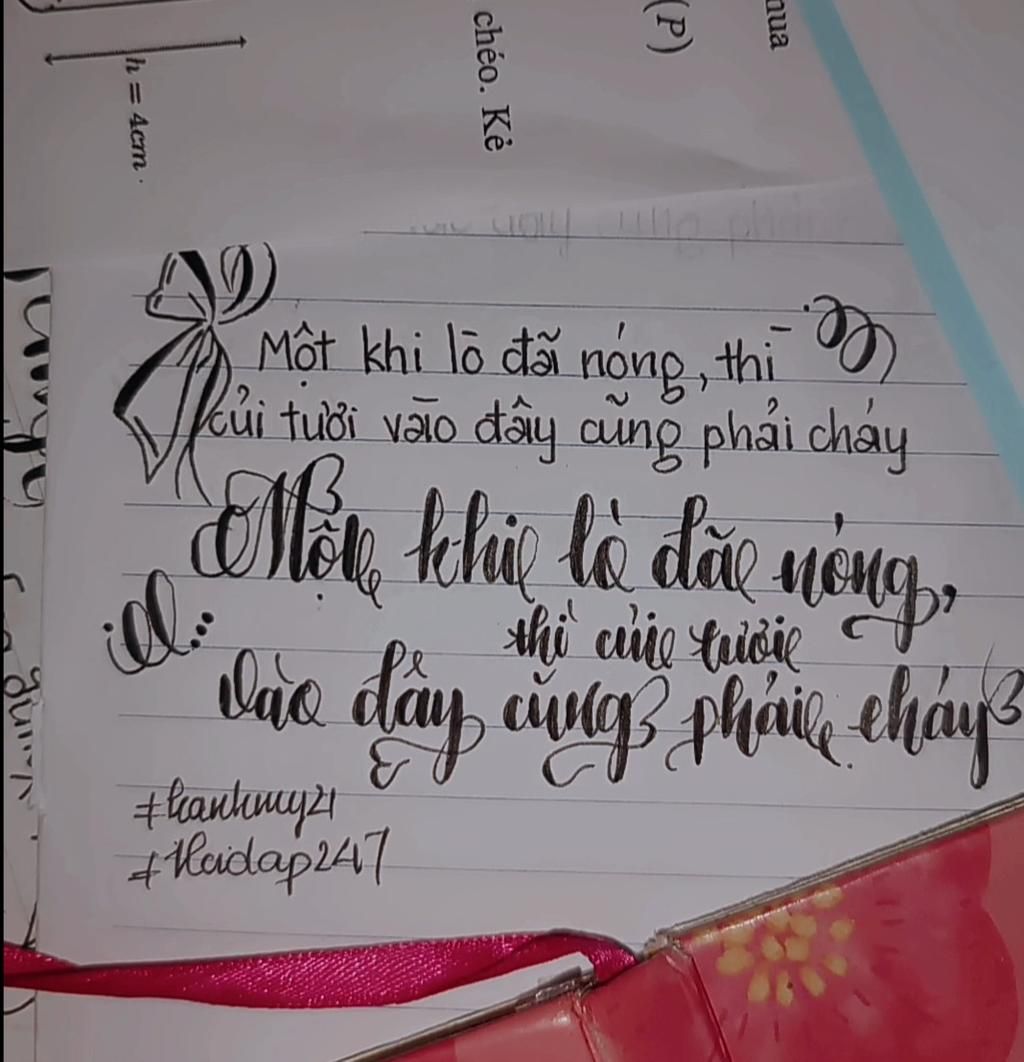 nua
(P)
chéo. Kẻ
h = 4cm.
Một khi lò đã nóng, thì
củi tươi vào đây cũng phải cháy
Một khi lò đã nóng,
thì củi tươi
vào đây cũng phải cháy
#hanhmy21
#Hoidap247